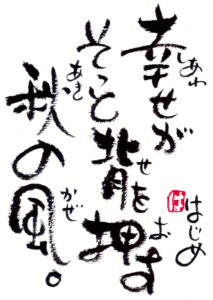 幸せが
しあわ
そっと背を押す
せ
お
秋の風。
あき
かぜ
はじめ
は